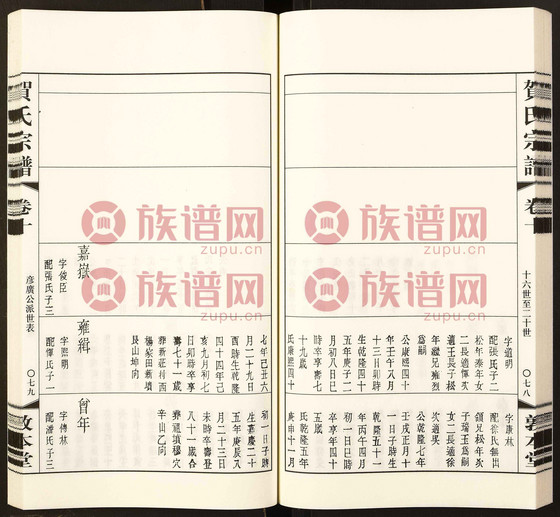 賀氏宗譜
卷十
十六世至二十世
〇七八
敦本堂
字道明
配張氏子二
松年泰年女
二長適惲次
適王長子松
年繼兄雍烈
爲嗣
公康熙四十
年壬午八月
十三日卯時
生乾隆四十
五年庚子二
月初八日巳
時卒享壽七
十九歲
氏康熙四十
字康林
配徐氏無出
領兄松年次
子瑞玉爲嗣
女二長適徐
次適吳
公乾隆七年
壬戌正月十
一日子時生
乾隆五十一
年丙午四月
初一日巳時
卒享年四十
五歲
氏乾隆五年
庚申十一月
七年己丑六
月二十九日
酉時生乾隆
四十四年己
亥九月初七
日卯時卒享
壽七十一歲
葬新莊村西
楊家田新墳
艮山坤向
初一日子時
生嘉慶二十
五年庚辰五
月二十三日
未時卒壽登
八十一歲合
葬祖墳穆穴
辛山乙向
嘉嶽
字俊臣
配張氏子三
雍緝
字熙朝
配惲氏子一
首年
字傳林
配潘氏子三
賀氏宗譜
卷十
彥廣公派世表
〇七九
敦本堂
族谱网
zupu.cn
族谱网
zupu.cn